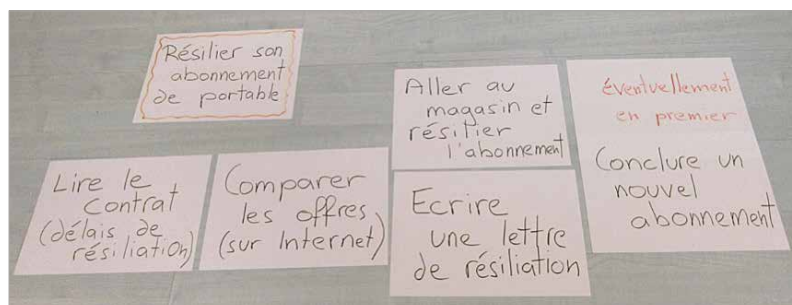 Résilier son
abonnement
de portable
Lire le
contrat
(délais de
résiliation)
Comparer
les offres
(sur Internet)
Aller au
magasin et
résilier
l'abonnement
Ecrire
une lettre
de résiliation
éventuellement
en premier
Conclure un
nouvel
abonnement